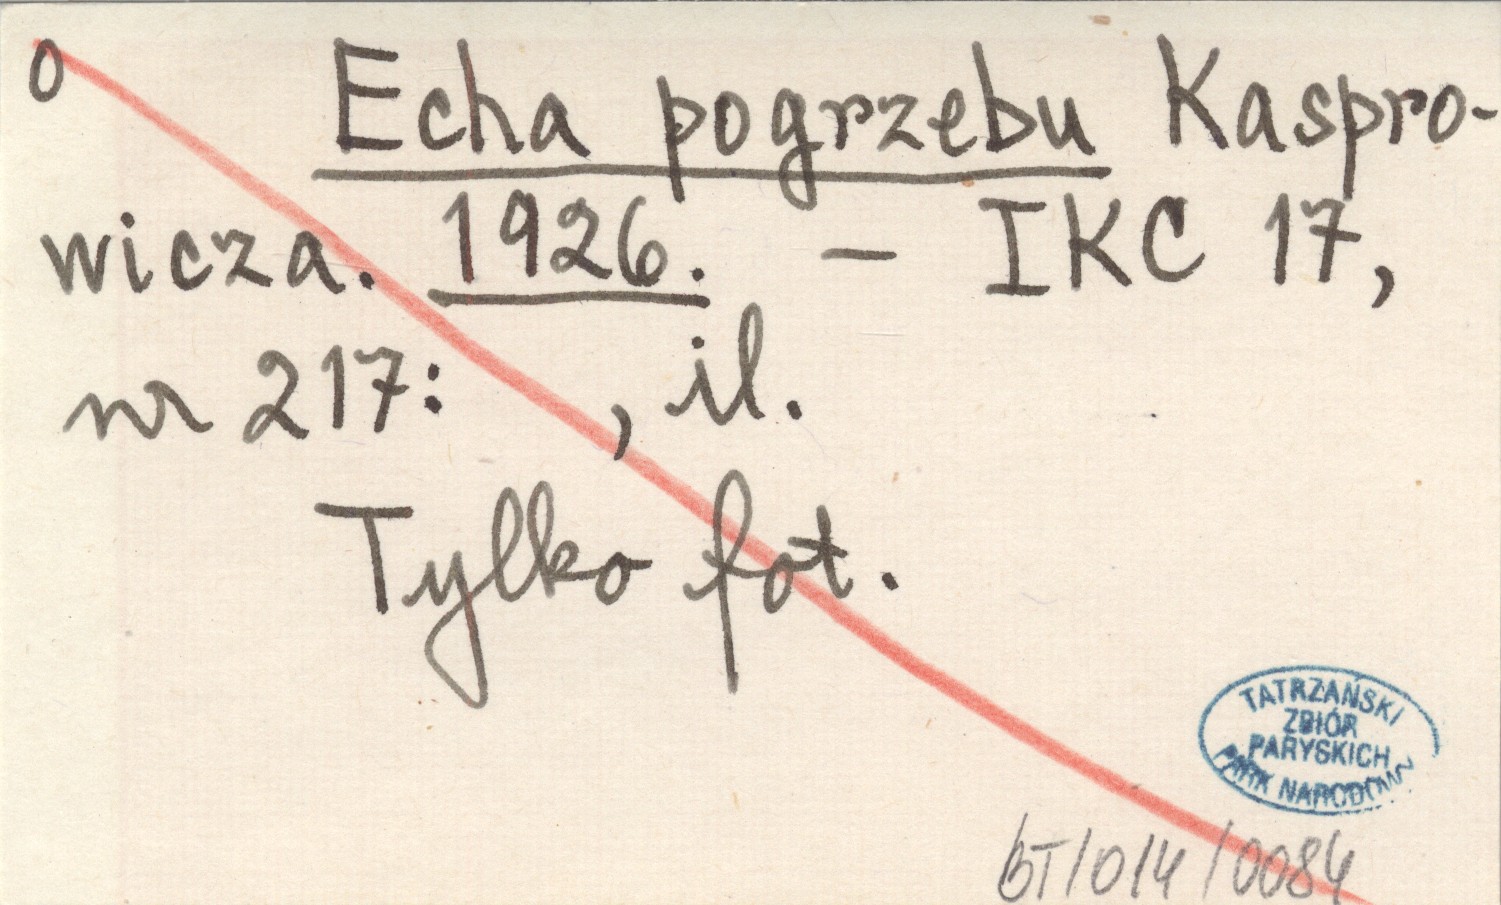 0
Echa pogrzebu Kaspro-
wicza. 1926. – IKC 17,
nr 217: , il.
Tylko fot.
TATRZAŃSKI
ZBIÓR
PARYSKICH
PARK NARODOWY
BT/014/0084